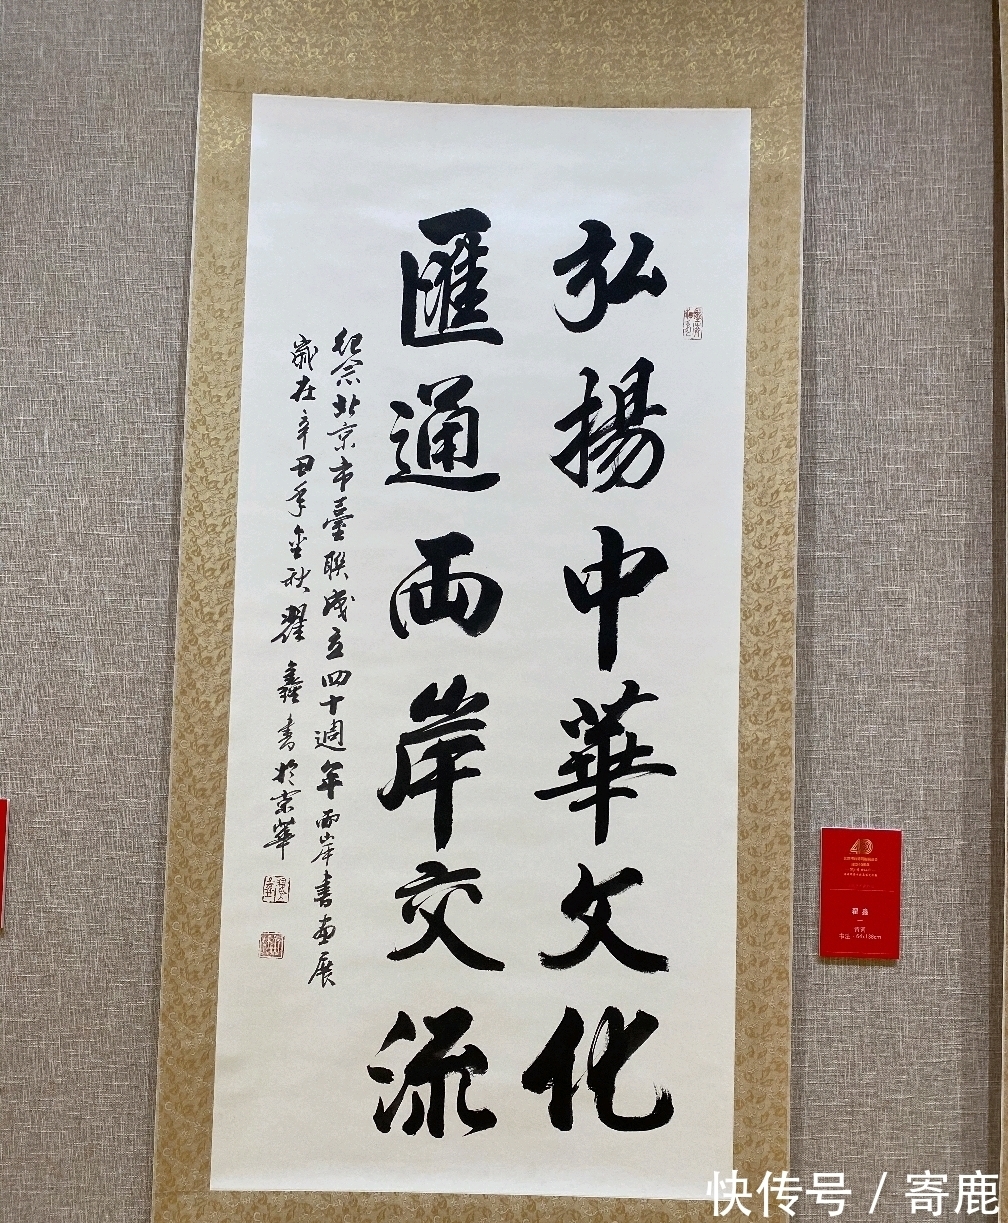 弘揚中華文化
匯通两岸交流
纪念北京市臺联成立四十週年两岸書画展
歲在辛丑年金秋翟鑫書於京華
40
翟鑫
书法：64x138cm
快传号 / 寄鹿